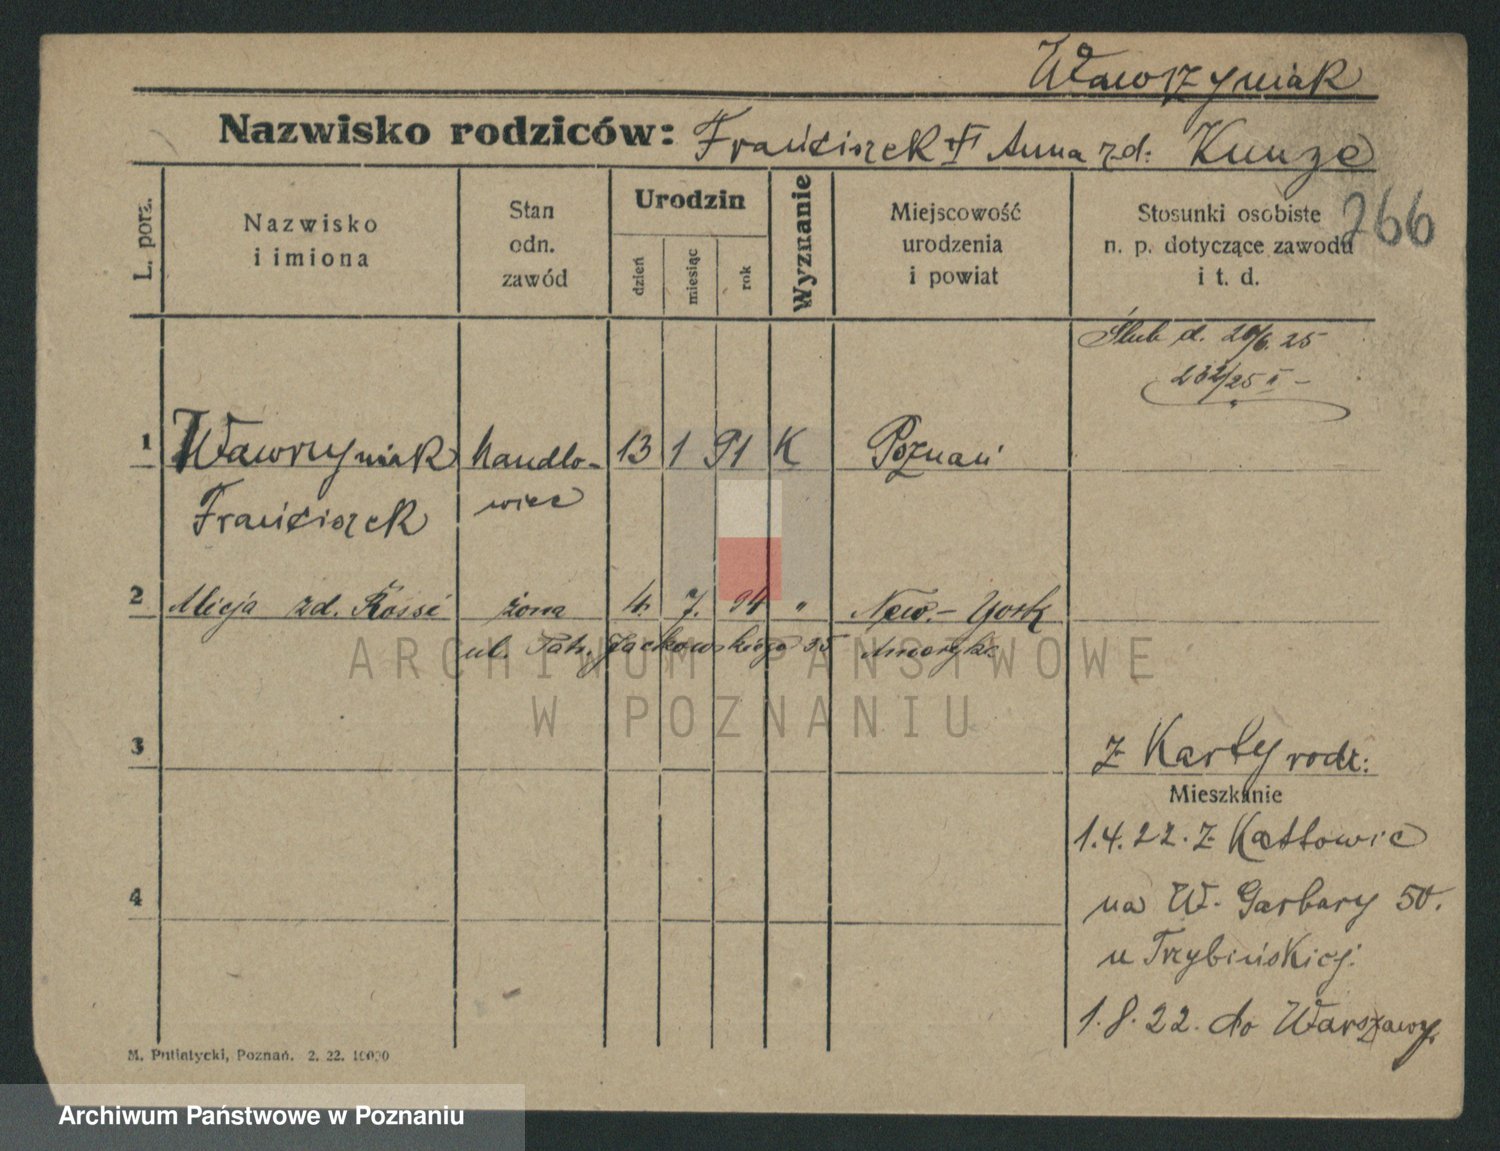 Wawrzyniak
Nazwisko rodziców: Franciszek † Anna zd: Kunze
266
L. porz.
Nazwisko
i imiona
Stan
odn.
zawód
Urodzin
dzień
miesiąc
rok
Wyznanie
Miejscowość
urodzenia
i powiat
Stosunki osobiste
n. p. dotyczące zawodu
i t. d.
Ślub d. 20/6. 25
232/25 II -
1 Wawrzyniak handlo- 13 1 91 K Poznań
Franciszek wiec
2 Alicja zd. Rossé żona 4. 7. 94 " New.- York
ul. Patr. Jackowskiego 35 Ameryka
ARCHIWUM PAŃSTWOWE
W POZNANIU
3
Z Karty rodz:
Mieszkanie
1.4.22. Z Kattowic
na W. Garbary 50.
u Trzybińskiej.
4
1.8.22. do Warszawy.
M. Putiatycki, Poznań. 2. 22. 10000
Archiwum Państwowe w Poznaniu